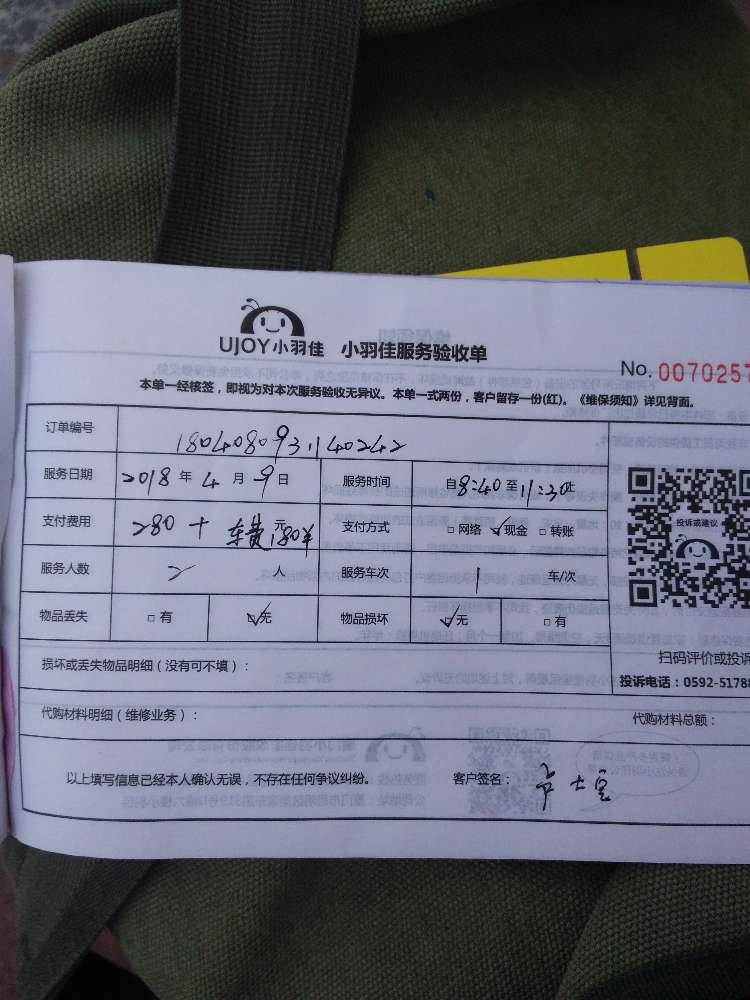 UJOY小羽佳 小羽佳服务验收单
No. 0070257
本单一经核签，即视为对本次服务验收无异议。本单一式两份，客户留存一份(红)。《维保须知》详见背面。
订单编号 180408093140242
服务日期 2018年4月9日 服务时间 自8:40至11:30止
支付费用 280+车费180半 元 支付方式 □网络 ☑现金 □转账
服务人数 2 人 服务车次 1 车/次
物品丢失 □有 ☑无 物品损坏 ☑无 □有
投诉或建议
扫码评价或投诉
损坏或丢失物品明细（没有可不填）：
投诉电话：0592-51788
代购材料明细（维修业务）：
代购材料总额：
以上填写信息已经本人确认无误，不存在任何争议纠纷。 客户签名：